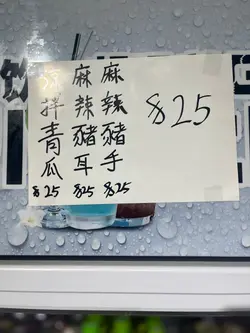 拌青瓜
$25
麻辣豬耳
$25
麻辣豬手
$25
$25